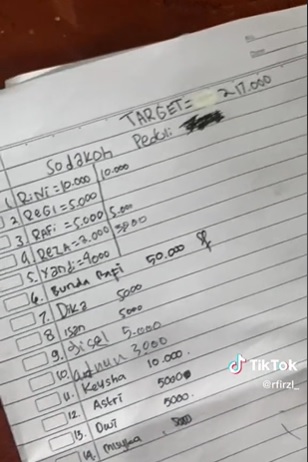 TARGET = 217.000
Sodakoh Peduli
1 RiNi = 10.000 10.000
2 REGI = 5.000
3. RAFi = 5.000 5.000
4. REZA = 2.000
5. Yandi = 4000
6. Bunda Rapi 50.000
7. Dika 5000
8. isan 5000
9. Disel 5.000
10. adnun 3.000
11. Keysha 10.000.
12. Astri 5000
13. Dwi 5000.
14.
TikTok
@rfirzl_